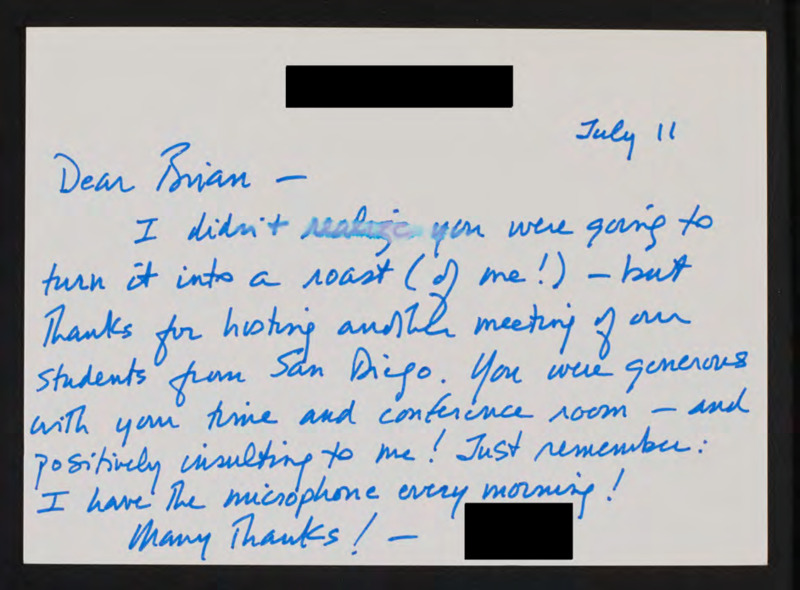 July 11
Dear Brian —
I didn't realize you were going to
turn it into a roast (of me!) — but
Thanks for hosting another meeting of our
students from San Diego. You were generous
with your time and conference room — and
positively insulting to me! Just remember:
I have the microphone every morning!
Many Thanks! —